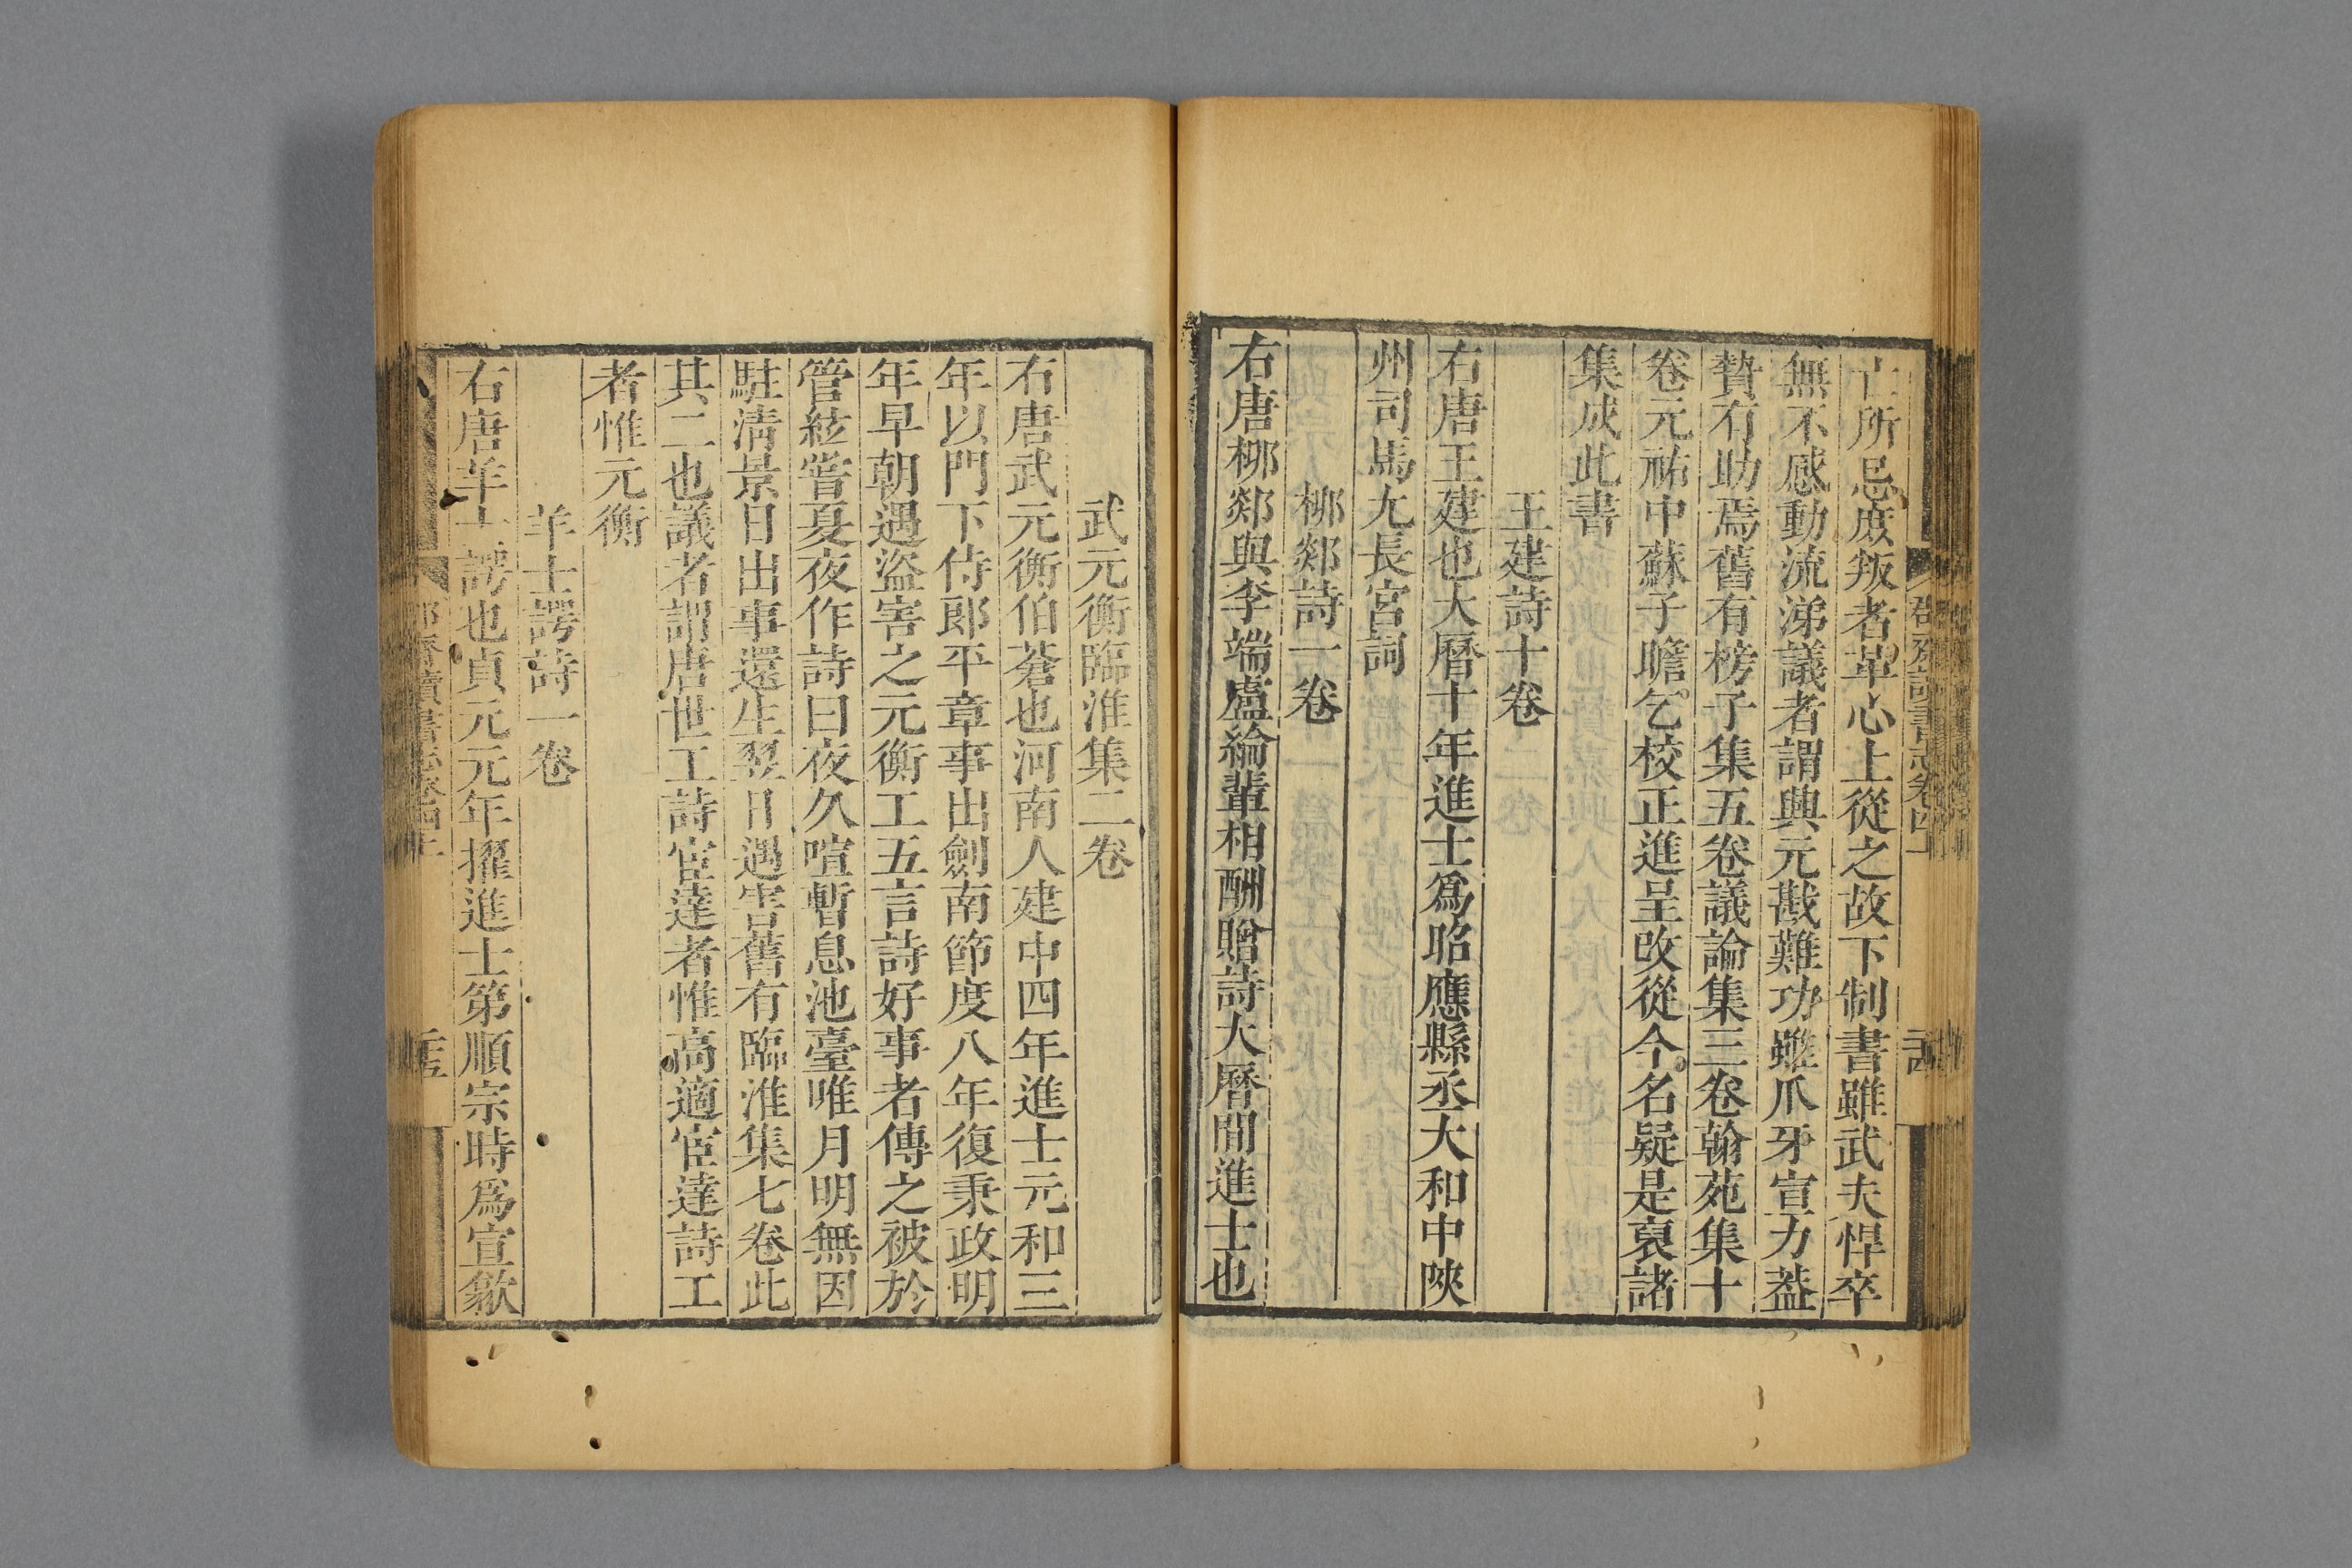 亡所忌庶叛者革心上從之故下制書雖武夫悍卒
無不感動流涕議者謂興元戡難功雖爪牙宣力葢
贊有助焉舊有榜子集五卷議論集三卷翰苑集十
卷元祐中蘇子瞻乞校正進呈改從今名疑是裒諸
集成此書
王建詩十卷
右唐王建也大曆十年進士爲昭應縣丞大和中陜
州司馬尢長宮詞
栁郯詩一卷
右唐栁郯與李端盧綸輩相酬贈詩大曆間進士也
武元衡臨淮集二卷
右唐武元衡伯蒼也河南人建中四年進士元和三
年以門下侍郎平章事出劍南節度八年復秉政明
年早朝遇盜害之元衡工五言詩好事者傳之被於
管絃嘗夏夜作詩曰夜久喧暫息池臺唯月明無因
駐淸景日出事還生翌日遇害舊有臨淮集七卷此
其二也議者謂唐世工詩宦達者惟高適宦達詩工
者惟元衡
羊士諤詩一卷
右唐羊士諤也貞元元年擢進士第順宗時爲宣歙